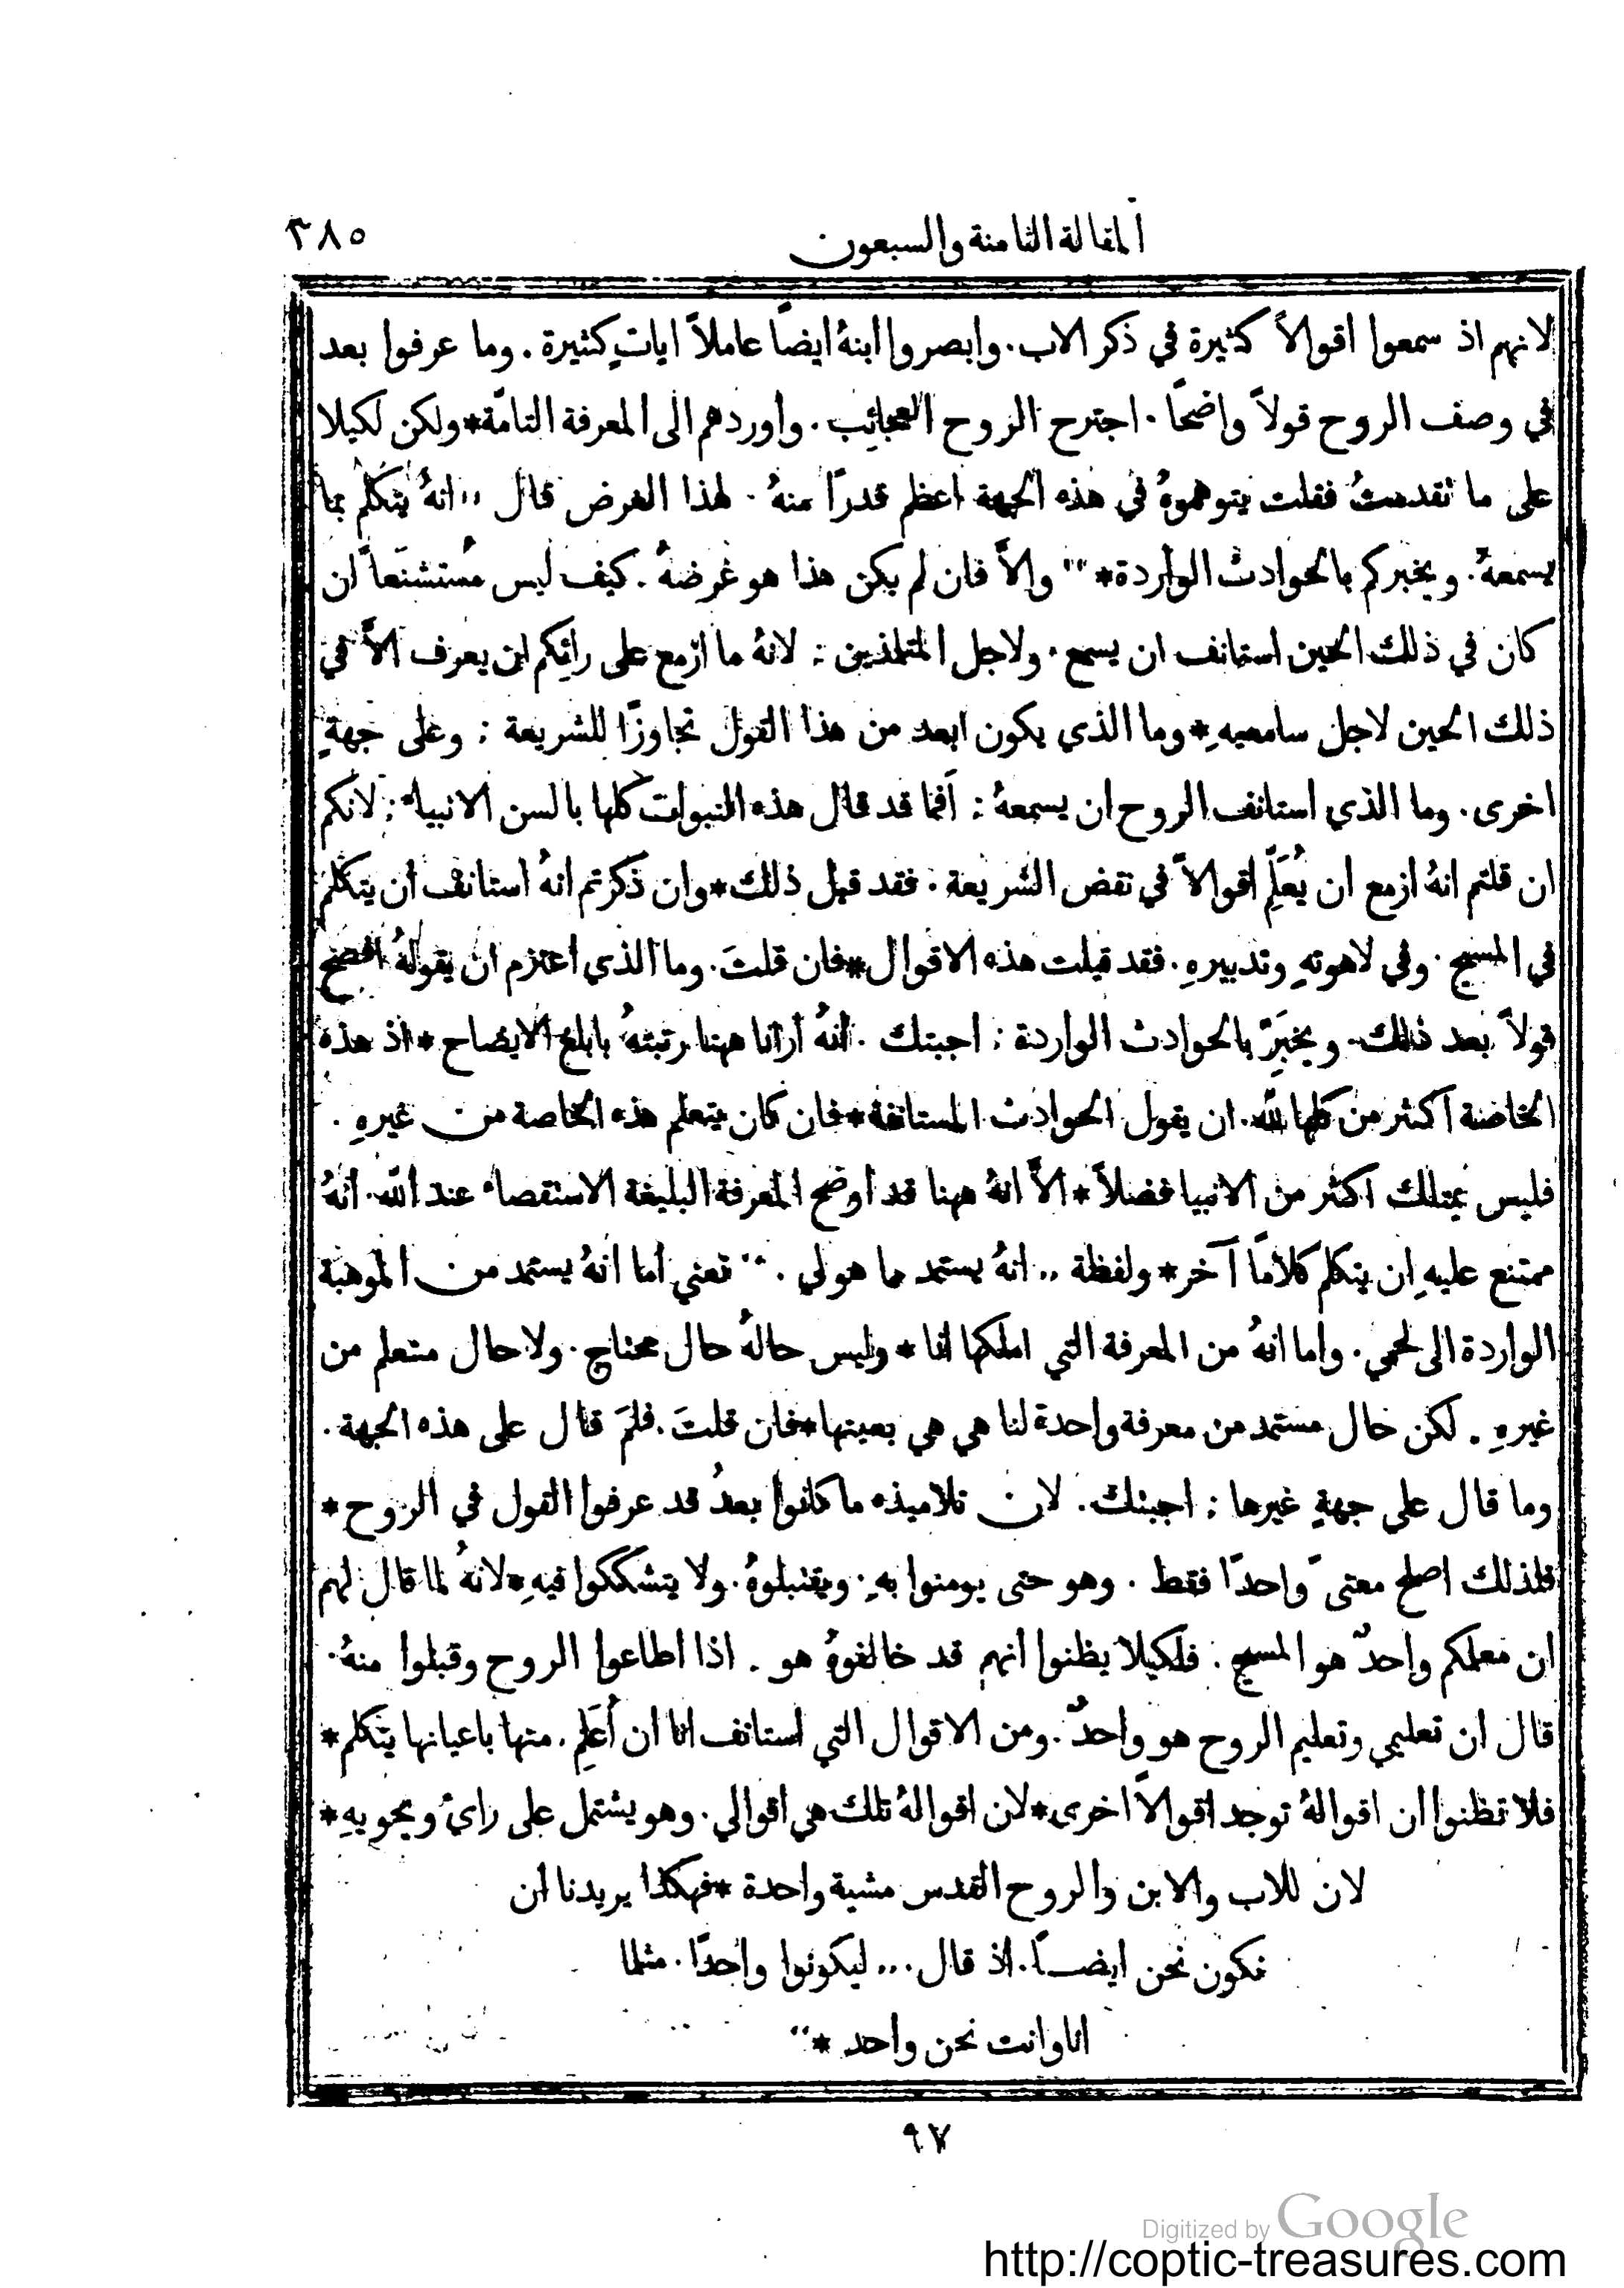 المقالة الثامنة والسبعون
٣٨٥
لانهم اذ سمعوا اقوالاً كثيرة في ذكر الاب. وابصروا ابنهُ ايضاً عاملاً اياتٍ كثيرة. وما عرفوا بعد
في وصف الروح قولاً واضحًا. اجترح الروح العجائب. واوردهم الى المعرفة التامّة * ولكن لكيلا
على ما تقدمتُ فقلت يتوهموهُ في هذه الجهة اعظم قدرًا منهُ. لهذا الغرض قال ,, انهُ يتكلم بما
يسمعهُ. ويخبركم بالحوادث الواردة * ״ والاَّ فان لم يكن هذا هو غرضهُ. كيف ليس مُستشنَعاً ان
كان في ذلك الحين استانف ان يسمع. ولاجل المتلمذين: لانهُ ما ازمع على رائِكم ان يعرف الاَّ في
ذلك الحين لاجل سامعيهِ * وما الذي يكون ابعد من هذا القول تجاوزًا للشريعة: وعلى جهةٍ
اخرى. وما الذي استانف الروح ان يسمعهُ: اَفما قد قال هذه النبوات كلها بالسن الانبياء: لانكم
ان قلتم انهُ ازمع ان يُعَلِّم اقوالاً في نقض الشريعة. فقد قيل ذلك * وان ذكرتم انهُ استانف ان يتكلم
في المسيح. وفي لاهوتهِ وتدبيرهِ. فقد قيلت هذه الاقوال * فان قلتَ. وما الذي اعتزم ان يقولهُ افصح
قولاً بعد ذلك. ويخبّر بالحوادث الواردة: اجبتك. انهُ ارانا ههنا رتبتهُ بابلغ الايضاح * اذ هذه
الخاصة اكثر من كلها لله. ان يقول الحوادث المستانفة * فان كان يتعلم هذه الخاصة من غيرهِ.
فليس يمتلك اكثر من الانبيا فضلاً * الاَّ انهُ ههنا قد اوضح المعرفة البليغة الاستقصاء عند الله. انهُ
ممتنع عليهِ ان يتكلم كلامًا آخر * ولفظة ,, انهُ يستمد مما هو لي. ״ تعني اما انهُ يستمد من الموهبة
الواردة الى لحمي. واما انهُ من المعرفة التي املكها انا * وليس حالهُ حال محتاج. ولا حال متعلم من
غيرهِ. لكن حال مستمد من معرفة واحدة لنا هي هي بعينها * فان قلتَ. فلمَ قال على هذه الجهة.
وما قال على جهةٍ غيرها: اجبتك. لان تلاميذه ما كانوا بعدُ قد عرفوا القول في الروح *
فلذلك اصلح معنىً واحدًا فقط. وهو حتى يومنوا بهِ. ويقتبلوهُ. ولا يتشككوا فيهِ * لانهُ لما قال لهم
ان معلمكم واحدٌ هو المسيح: فلكيلا يظنوا انهم قد خالفوهُ هو. اذا اطاعوا الروح وقبلوا منهُ.
قال ان تعليمي وتعليم الروح هو واحدٌ. ومن الاقوال التي استانف انا ان أُعَلِّم. منها باعيانها يتكلم *
فلا تظنوا ان اقوالهُ توجد اقوالاً اخرى * لان اقوالهُ تلك هي اقوالي. وهو يشتمل على رايي ويحويهِ *
لان للاب والابن والروح القدس مشية واحدة * فهكذا يريدنا ان
نكون نحن ايضـاً. اذ قال. ,, ليكونوا واحدًا. مثلما
انا وانت نحن واحد * ״
٩٧
Digitized by Google
http://coptic-treasures.com